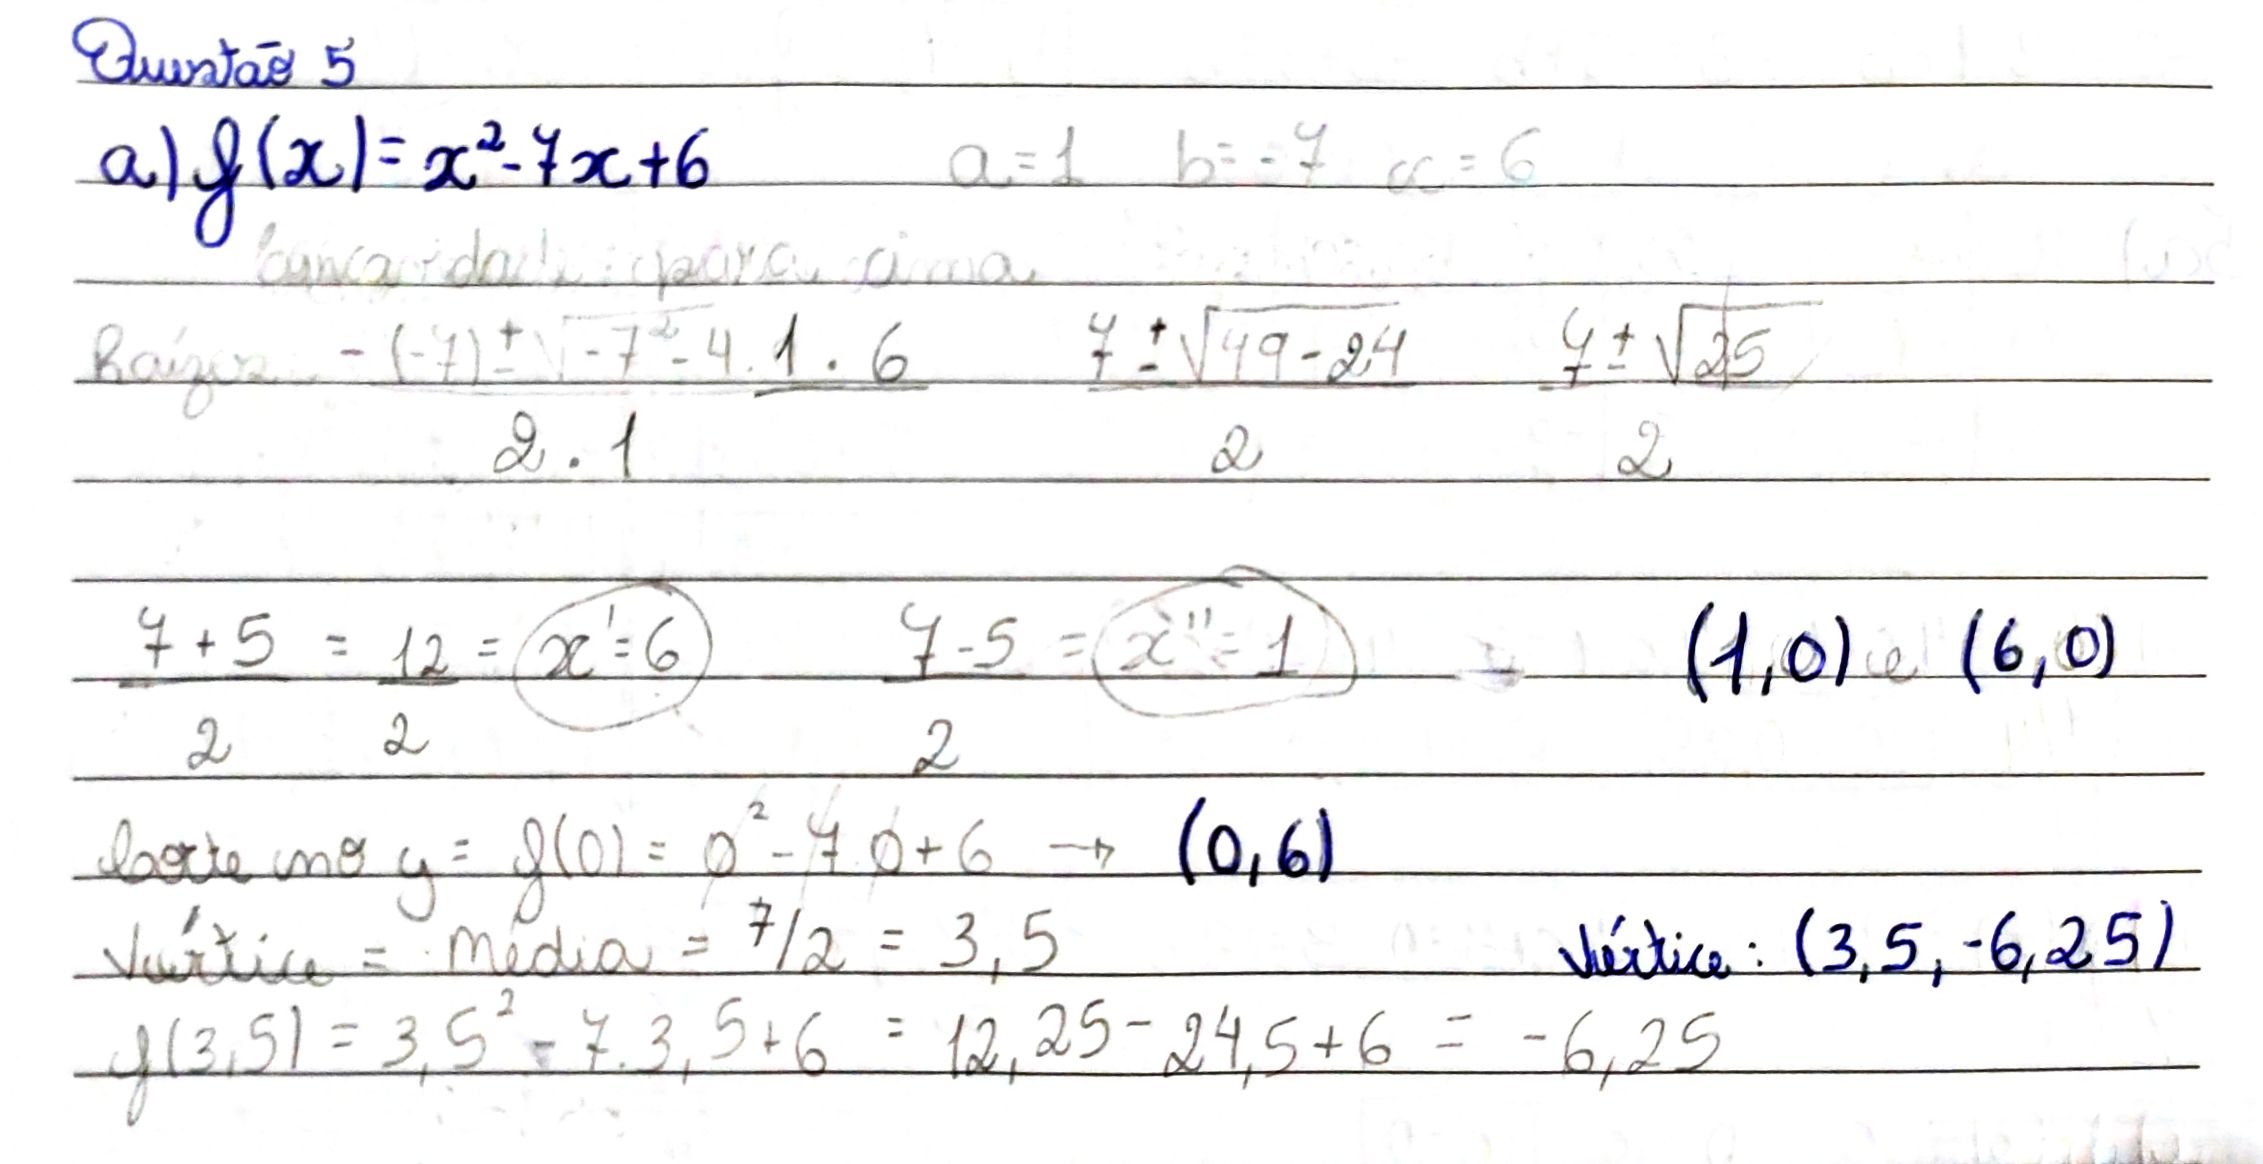 Questão 5
a) f(x) = x² - 7x + 6 a = 1 b = -7 c = 6
concavidade para cima
Raízes -(-7) ± √-7² - 4 . 1 . 6 7 ± √49 - 24 7 ± √25
2 . 1 2 2
7 + 5 = 12 = x' = 6 7 - 5 = x'' = 1 (1,0) e (6,0)
2 2 2
Corte no y = f(0) = 0² - 7.0 + 6 → (0,6)
Vértice = média = 7/2 = 3,5 Vértice: (3,5, -6,25)
f(3,5) = 3,5² - 7.3,5 + 6 = 12,25 - 24,5 + 6 = -6,25